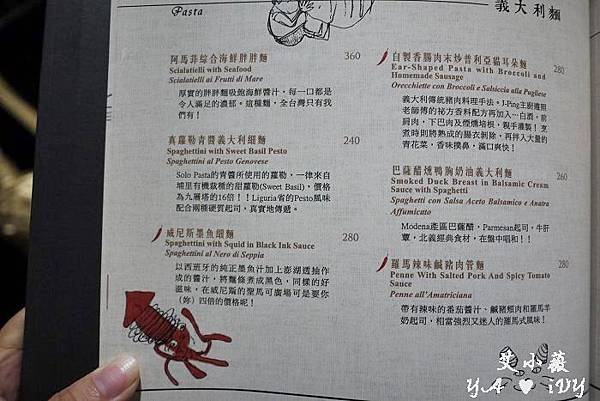 Pasta
義大利麵
阿馬菲綜合海鮮胖胖麵 360
Scialatielli with Seafood
Scialatielli ai Frutti di Mare
厚實的胖胖麵吸飽海鮮醬汁，每一口都是
令人滿足的濃郁。這種麵，全台灣只有我
們有！
真羅勒青醬義大利細麵 240
Spaghettini with Sweet Basil Pesto
Spaghettini al Pesto Genovese
Solo Pasta的青醬所使用的羅勒，一律來自
埔里有機栽種的甜羅勒(Sweet Basil)，價格
為九層塔的16倍！！Liguria省的Pesto風味
配合兩種硬質起司，真實地傳遞。
威尼斯墨魚細麵 280
Spaghettini with Squid in Black Ink Sauce
Spaghettini al Nero di Seppia
以西班牙的純正墨魚汁加上澎湖透抽作
成的醬汁，將麵條煮成黑色，同樣的好
滋味，在威尼斯的聖馬可廣場可是要你
（妳）四倍的價格呢！
自製香腸肉末炒普利亞貓耳朵麵 280
Ear-Shaped Pasta with Broccoli and
Homemade Sausage
Orecchiette con Broccoli e Salsiccia alla Pugliese
義大利傳統豬肉料理手法。J-Ping主廚遵照
老師傅的祕方香料配方再加入…白酒，前
肩肉，下巴肉及煙燻培根，親手灌製！烹
煮時則將熟成的腸衣剝除，再拌入大量的
青花菜，香味撲鼻，滿口爽快！
巴薩醋燻鴨胸奶油義大利麵 260
Smoked Duck Breast in Balsamic Cream
Sauce with Spaghetti
Spaghetti con Salsa Aceto Balsamico e Anatra
Affumicato
Modena產區巴薩醋，Parmesan起司，牛肝
蕈，北義經典食材，在盤中唱和！！
羅馬辣味鹹豬肉管麵 280
Penne With Salted Pork And Spicy Tomato
Sauce
Penne all'Amatriciana
帶有辣味的番茄醬汁、鹹豬頰肉和羅馬羊
奶起司，相當強烈又迷人的羅馬式風味！
艾小薇
YA ♥ iVY